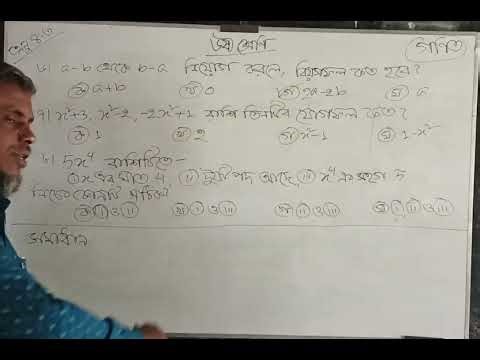 ৬ষ্ঠ শ্রেণি
গণিত
৬। a-b থেকে b-a বিয়োগ করলে, বিয়োগফল কত হবে?
ক a+b খ 0 গ 2a-2b ঘ a
৭। x²+3, x²-2, -2x²+1 রাশি তিনটির যোগফল কত?
ক 1 খ 2 গ x²-1 ঘ 1-x²
৮। 5x⁴ রাশিটিতে-
i x এর ঘাত 4, ii দুটি পদ আছে, iii x⁴ এর সহগ 5
নিচের কোনটি সঠিক?
ক i ও ii খ i ও iii গ ii ও iii ঘ i, ii ও iii
সমাধান